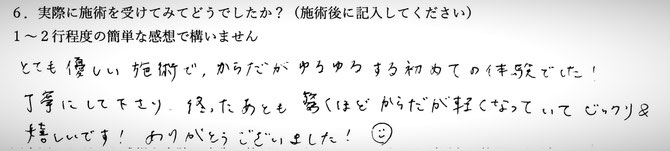 6．実際に施術を受けてみてどうでしたか？（施術後に記入してください）
1～2行程度の簡単な感想で構いません
とても優しい施術で，からだがゆるゆるする初めての体験でした！
丁寧にして下さり、終ったあとも驚くほどからだが軽くなっていてビックリ&
嬉しいです！ありがとうございました！☺